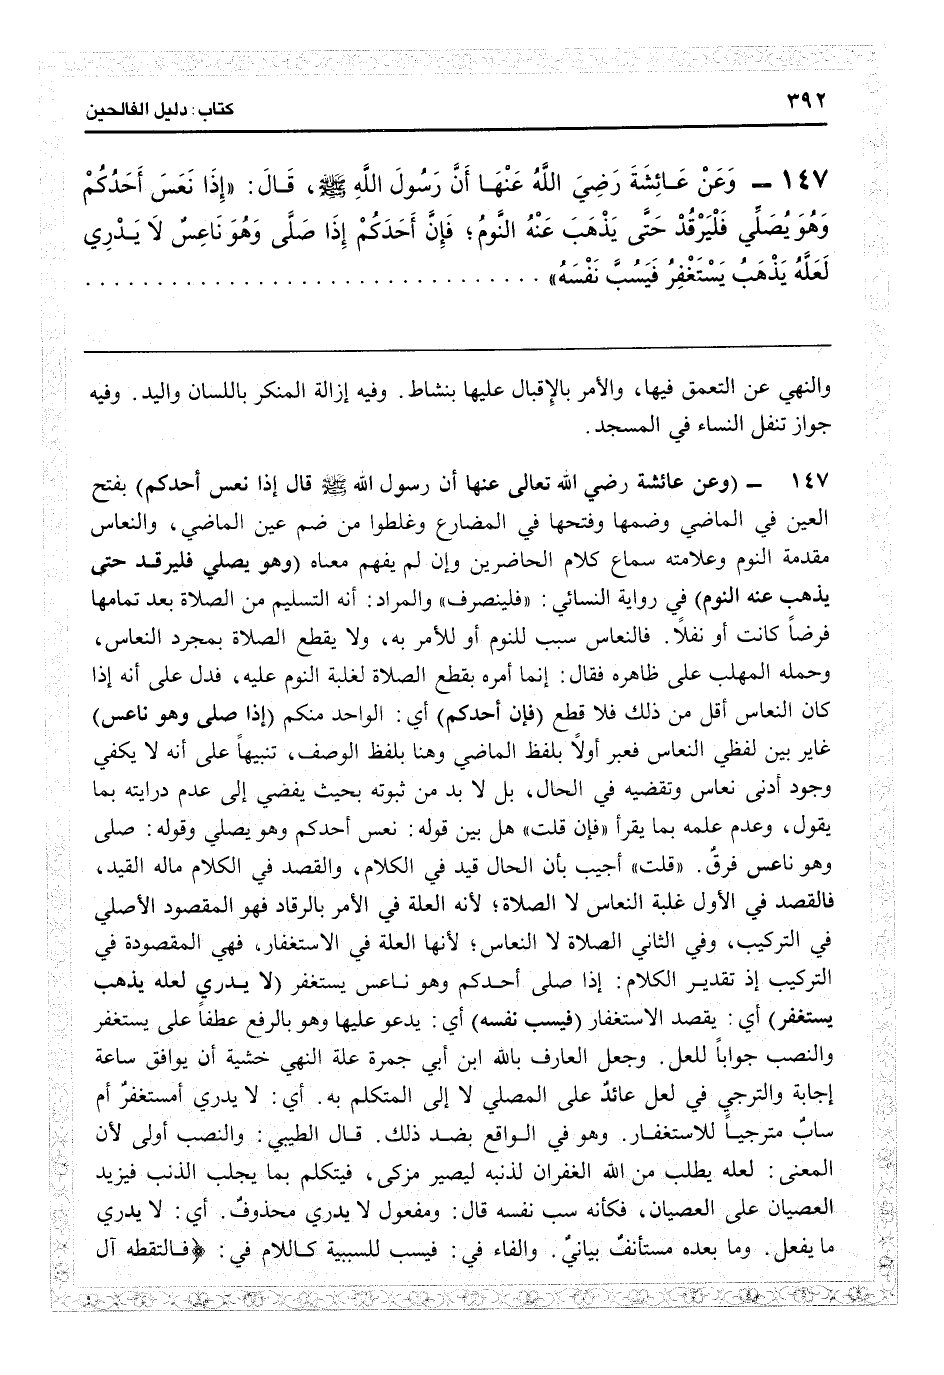 ٣٩٢
كتاب: دليل الفالحين
١٤٧ – وَعَنْ عَـائِشَةَ رَضِيَ اللَّهُ عَنْهَـا أَنَّ رَسُولَ اللَّهِ ﷺ، قَـالَ: «إِذَا نَعَسَ أَحَدُكُمْ
وَهُوَ يُصَلِّي فَلْيَرْقُدْ حَتَّى يَذْهَبَ عَنْهُ النَّومُ؛ فَإِنَّ أَحَدَكُمْ إِذَا صَلَّى وَهُوَ نَاعِسٌ لَا يَـدْرِي
لَعَلَّهُ يَذْهَبُ يَسْتَغْفِرُ فَيَسُبَّ نَفْسَهُ» . . . . . . . . . . . . . . . . . . . . . . . . . . . . . . . .
والنهي عن التعمق فيها، والأمر بالإِقبال عليها بنشاط. وفيه إزالة المنكر باللسان واليد. وفيه
جواز تنفل النساء في المسجد.
١٤٧ – (وعن عائشة رضي الله تعالى عنها أن رسول الله ﷺ قال إذا نعس أحدكم) بفتح
العين في الماضي وضمها وفتحها في المضارع وغلطوا من ضم عين الماضي، والنعاس
مقدمة النوم وعلامته سماع كلام الحاضرين وإن لم يفهم معناه (وهو يصلي فليرقـد حتى
يذهب عنه النوم) في رواية النسائي: «فلينصرف» والمراد: أنه التسليم من الصلاة بعد تمامها
فرضاً كانت أو نفلًا. فالنعاس سبب للنوم أو للأمر به، ولا يقطع الصلاة بمجرد النعاس،
وحمله المهلب على ظاهره فقال: إنما أمره بقطع الصلاة لغلبة النوم عليه، فدل على أنه إذا
كان النعاس أقل من ذلك فلا قطع (فإن أحدكم) أي: الواحد منكم (إذا صلى وهو ناعس)
غاير بين لفظي النعاس فعبر أولًا بلفظ الماضي وهنا بلفظ الوصف، تنبيهاً على أنه لا يكفي
وجود أدنى نعاس وتقضيه في الحال، بل لا بد من ثبوته بحيث يفضي إلى عدم درايته بما
يقول، وعدم علمه بما يقرأ «فإن قلت» هل بين قوله: نعس أحدكم وهو يصلي وقوله: صلى
وهو ناعس فرقٌ. «قلت» أجيب بأن الحال قيد في الكلام، والقصد في الكلام ماله القيد،
فالقصد في الأول غلبة النعاس لا الصلاة؛ لأنه العلة في الأمر بالرقاد فهو المقصود الأصلي
في التركيب، وفي الثاني الصلاة لا النعاس؛ لأنها العلة في الاستغفار، فهي المقصودة في
التركيب إذ تقديـر الكلام: إذا صلى أحـدكم وهو نـاعس يستغفر (لا يـدري لعله يذهب
يستغفر) أي: يقصد الاستغفار (فيسب نفسه) أي: يدعو عليها وهو بالرفع عطفاً على يستغفر
والنصب جواباً للعل. وجعل العارف بالله ابن أبي جمرة علة النهي خشية أن يوافق ساعة
إجابة والترجي في لعل عائدٌ على المصلي لا إلى المتكلم به. أي: لا يدري أمستغفرٌ أم
سابٌ مترجيـاً للاستغفـار. وهو في الـواقع بضـد ذلك. قـال الطيبي: والنصب أولى لأن
المعنى: لعله يطلب من الله الغفران لذنبه ليصير مزكى، فيتكلم بما يجلب الذنب فيزيد
العصيان على العصيان، فكأنه سب نفسه قال: ومفعول لا يدري محذوفٌ. أي: لا يدري
ما يفعل. وما بعده مستأنفٌ بيانيٌ. والفاء في: فيسب للسببية كـاللام في: ﴿فـالتقطه آل